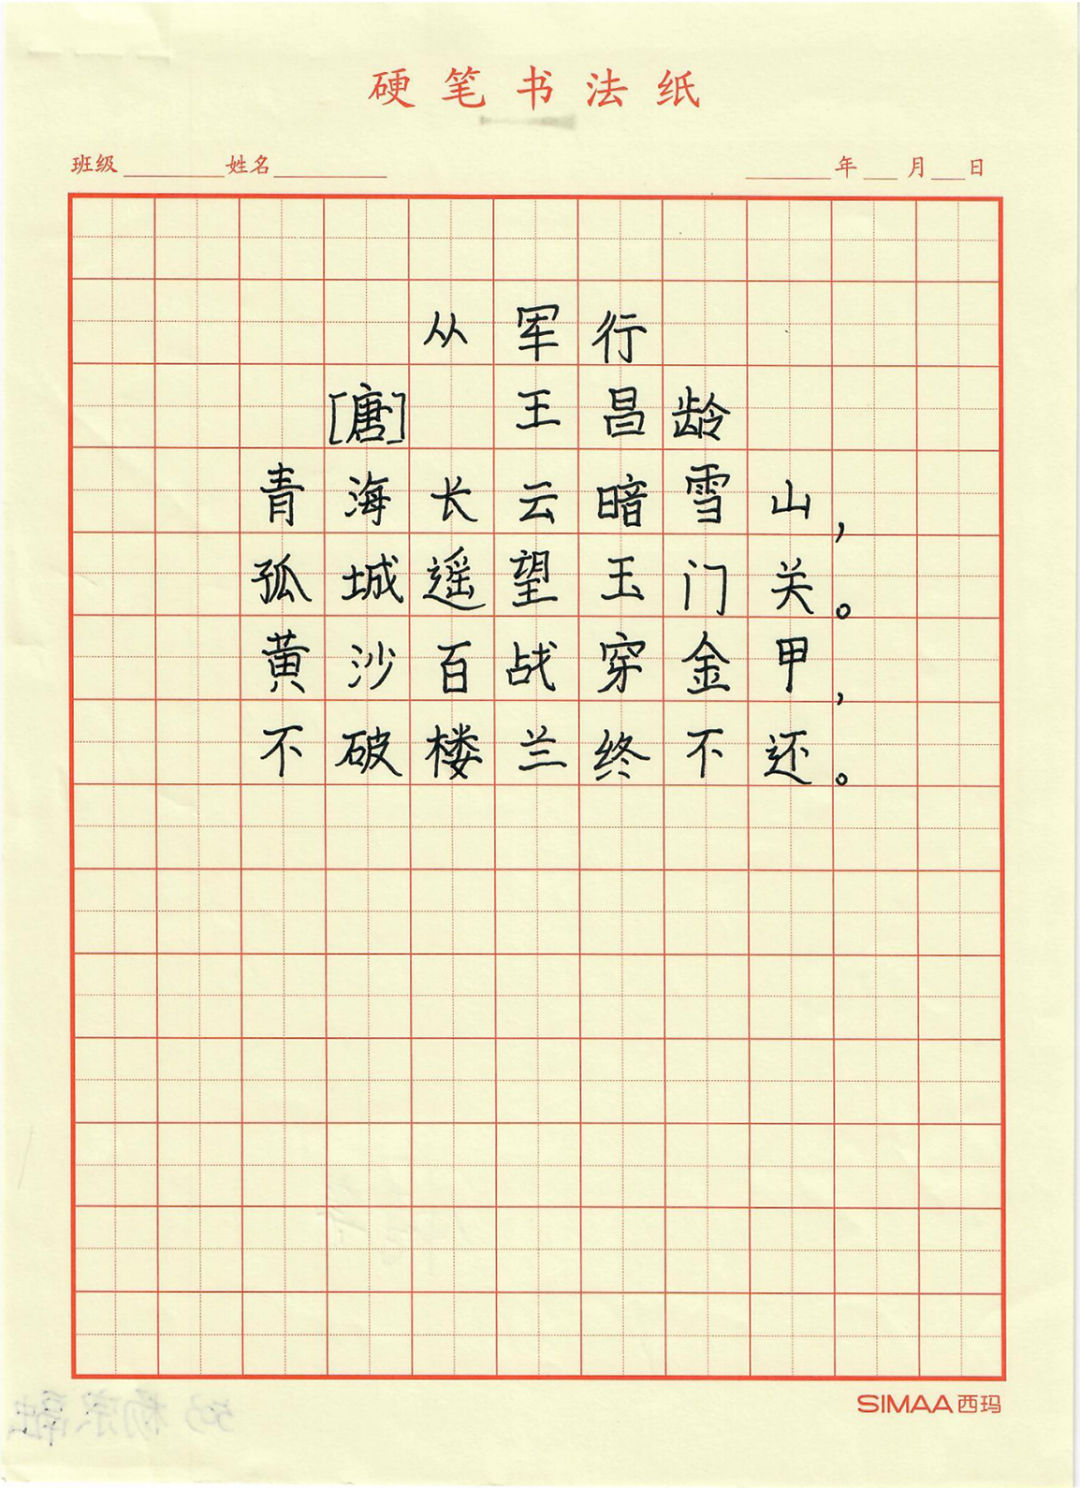 硬笔书法纸
班级 姓名 年 月 日
从军行
[唐] 王昌龄
青海长云暗雪山，
孤城遥望玉门关。
黄沙百战穿金甲，
不破楼兰终不还。
SIMAA西玛